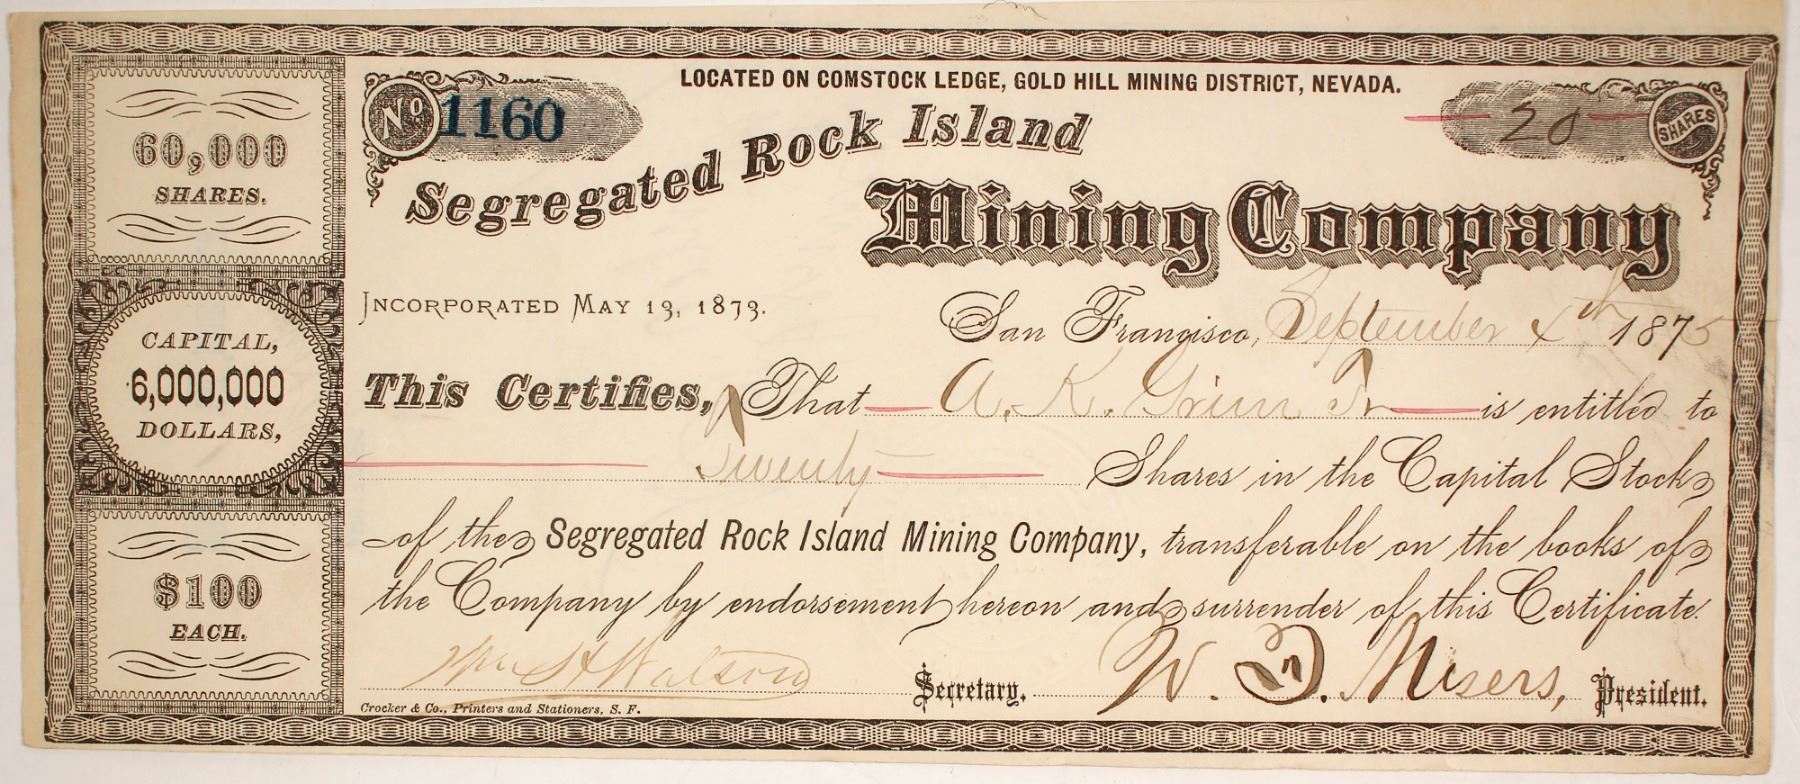 LOCATED ON COMSTOCK LEDGE, GOLD HILL MINING DISTRICT, NEVADA.
No 1160
20 SHARES
Segregated Rock Island
Mining Company
60,000
SHARES.
CAPITAL,
6,000,000
DOLLARS,
$100
EACH.
INCORPORATED MAY 13, 1873.
San Francisco, September 4th 1875
This Certifies, That A. K. Grim Tr is entitled to
Twenty Shares in the Capital Stock
of the Segregated Rock Island Mining Company, transferable on the books of
the Company by endorsement hereon and surrender of this Certificate.
Wm H Watson Secretary. W. D. Mesers, President.
Crocker & Co., Printers and Stationers, S. F.